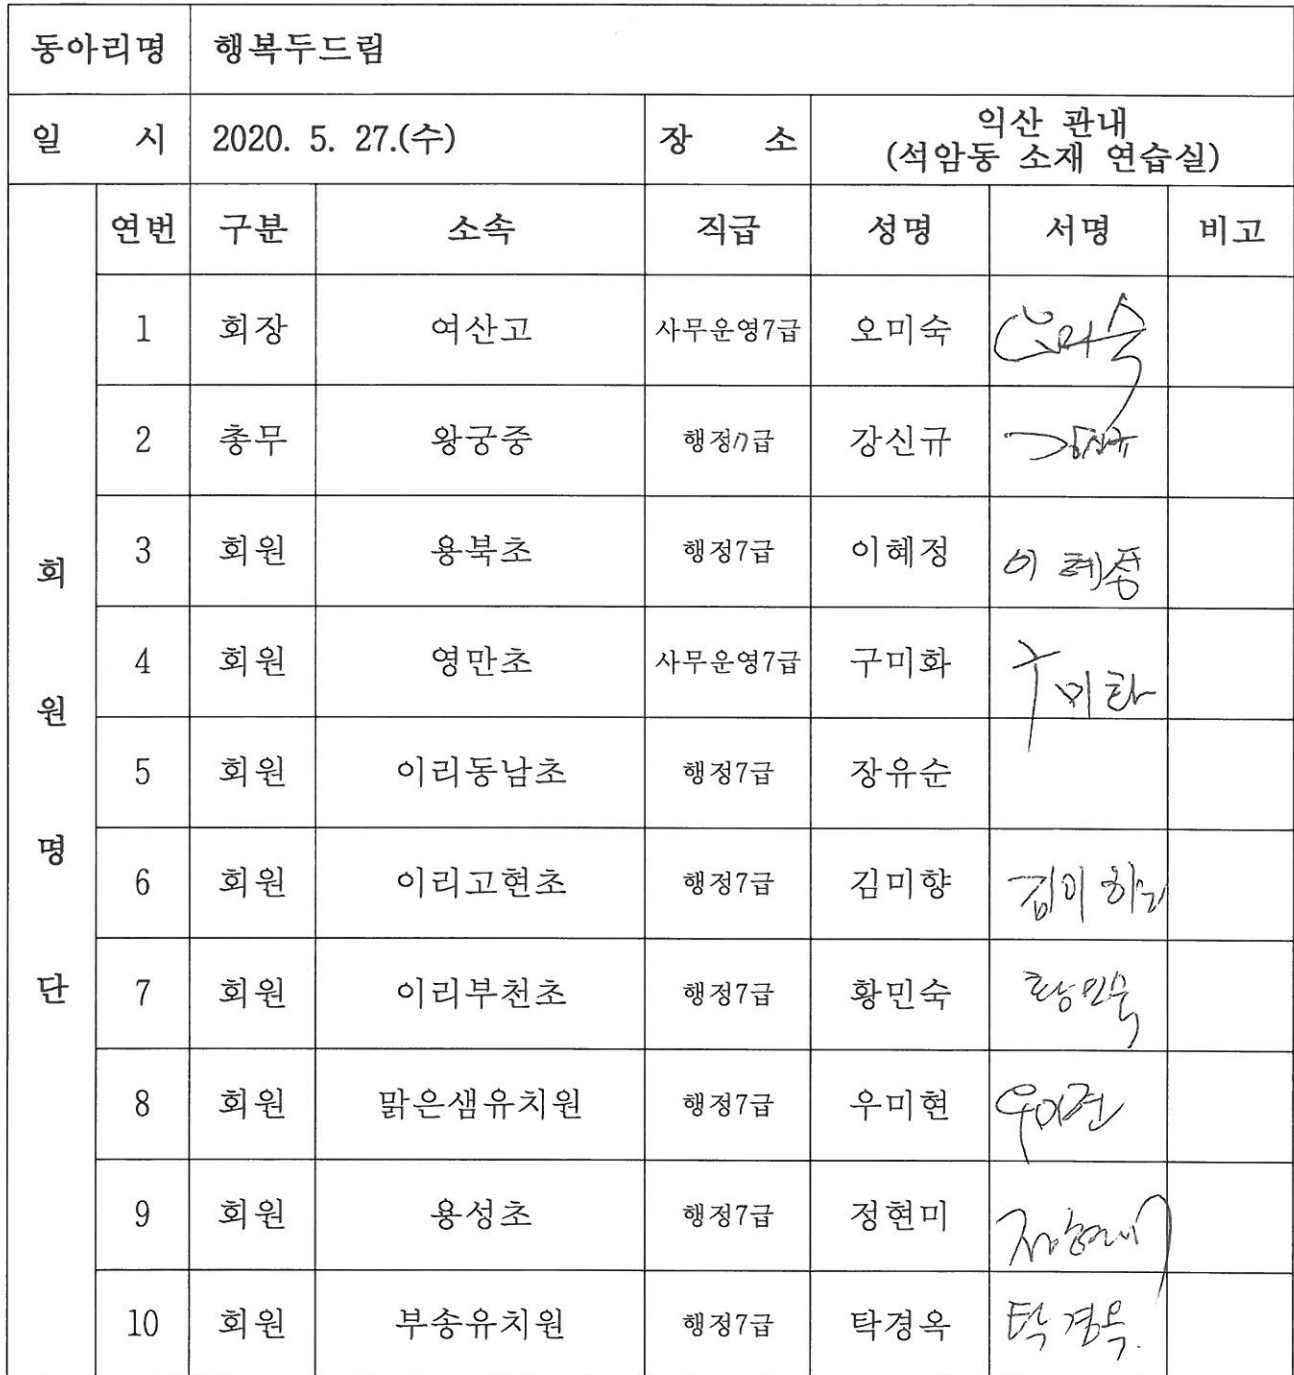 동아리명 행복두드림
일 시 2020. 5. 27.(수) 장 소 익산 관내
(석암동 소재 연습실)
회원명단
연번 구분 소속 직급 성명 서명 비고
1 회장 여산고 사무운영7급 오미숙 오미숙
2 총무 왕궁중 행정7급 강신규 강신규
3 회원 용북초 행정7급 이혜정 이혜정
4 회원 영만초 사무운영7급 구미화 구미화
5 회원 이리동남초 행정7급 장유순
6 회원 이리고현초 행정7급 김미향 김미향
7 회원 이리부천초 행정7급 황민숙 황민숙
8 회원 맑은샘유치원 행정7급 우미현 우미현
9 회원 용성초 행정7급 정현미 정현미
10 회원 부송유치원 행정7급 탁경옥 탁경옥